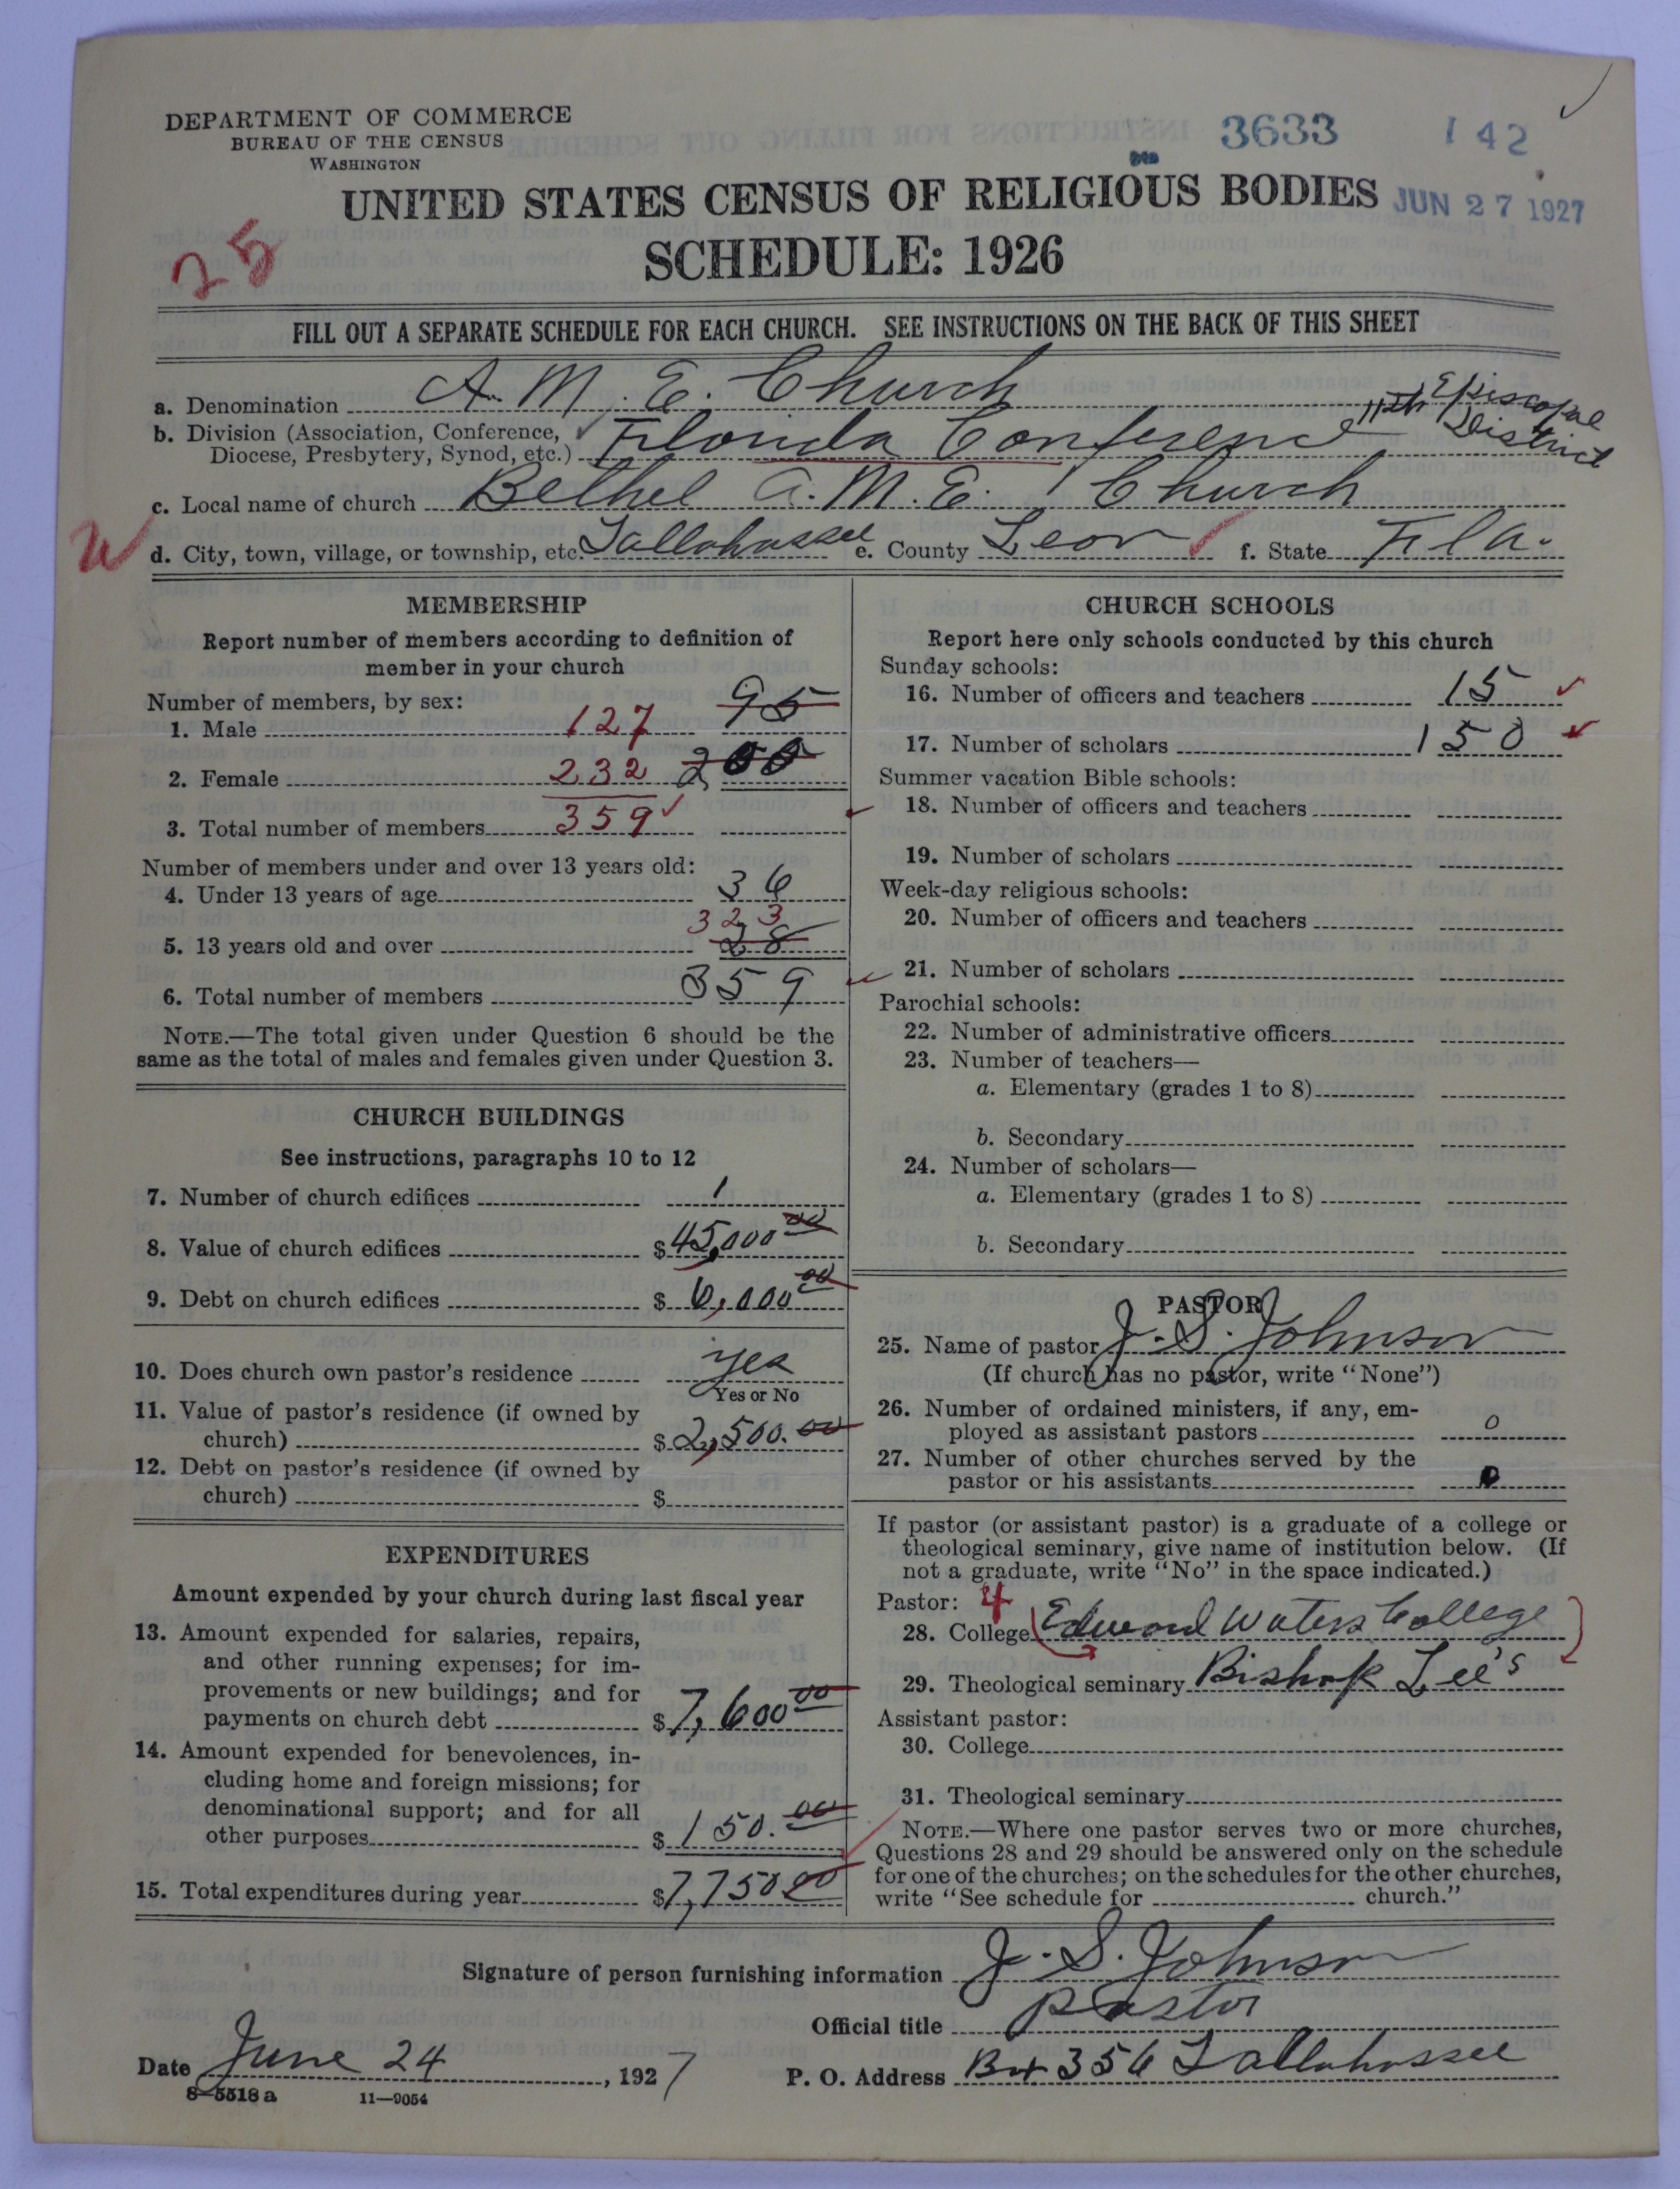 DEPARTMENT OF COMMERCE
BUREAU OF THE CENSUS
WASHINGTON
3633 142
UNITED STATES CENSUS OF RELIGIOUS BODIES
JUN 27 1927
SCHEDULE: 1926
25
FILL OUT A SEPARATE SCHEDULE FOR EACH CHURCH. SEE INSTRUCTIONS ON THE BACK OF THIS SHEET
a. Denomination A. M. E. Church
b. Division (Association, Conference, Diocese, Presbytery, Synod, etc.) Florida Conference 11th Episcopal District
c. Local name of church Bethel A. M. E. Church
d. City, town, village, or township, etc. Tallahassee e. County Leon f. State Fla.
MEMBERSHIP
Report number of members according to definition of
member in your church
Number of members, by sex:
1. Male 127 95
2. Female 232 200
3. Total number of members 359
Number of members under and over 13 years old:
4. Under 13 years of age 36
323
5. 13 years old and over 28
6. Total number of members 359
NOTE.—The total given under Question 6 should be the
same as the total of males and females given under Question 3.
CHURCH BUILDINGS
See instructions, paragraphs 10 to 12
7. Number of church edifices 1
8. Value of church edifices $45,000 00
9. Debt on church edifices $6,000 00
10. Does church own pastor's residence yes
Yes or No
11. Value of pastor's residence (if owned by
church) $2,500.00
12. Debt on pastor's residence (if owned by
church) $
EXPENDITURES
Amount expended by your church during last fiscal year
13. Amount expended for salaries, repairs,
and other running expenses; for im-
provements or new buildings; and for
payments on church debt $7,600 00
14. Amount expended for benevolences, in-
cluding home and foreign missions; for
denominational support; and for all
other purposes $150.00
15. Total expenditures during year $7,750 00
CHURCH SCHOOLS
Report here only schools conducted by this church
Sunday schools:
16. Number of officers and teachers 15
17. Number of scholars 150
Summer vacation Bible schools:
18. Number of officers and teachers
19. Number of scholars
Week-day religious schools:
20. Number of officers and teachers
21. Number of scholars
Parochial schools:
22. Number of administrative officers
23. Number of teachers—
a. Elementary (grades 1 to 8)
b. Secondary
24. Number of scholars—
a. Elementary (grades 1 to 8)
b. Secondary
PASTOR
25. Name of pastor J. S. Johnson
(If church has no pastor, write "None")
26. Number of ordained ministers, if any, em-
ployed as assistant pastors 0
27. Number of other churches served by the
pastor or his assistants 0
If pastor (or assistant pastor) is a graduate of a college or
theological seminary, give name of institution below. (If
not a graduate, write "No" in the space indicated.)
Pastor: 4
28. College Edward Waters College
29. Theological seminary Bishop Lee's
Assistant pastor:
30. College
31. Theological seminary
NOTE.—Where one pastor serves two or more churches,
Questions 28 and 29 should be answered only on the schedule
for one of the churches; on the schedules for the other churches,
write "See schedule for church."
Signature of person furnishing information J. S. Johnson
Official title Pastor
Date June 24, 1927 P. O. Address Box 356 Tallahassee
8—5518 a 11—9054